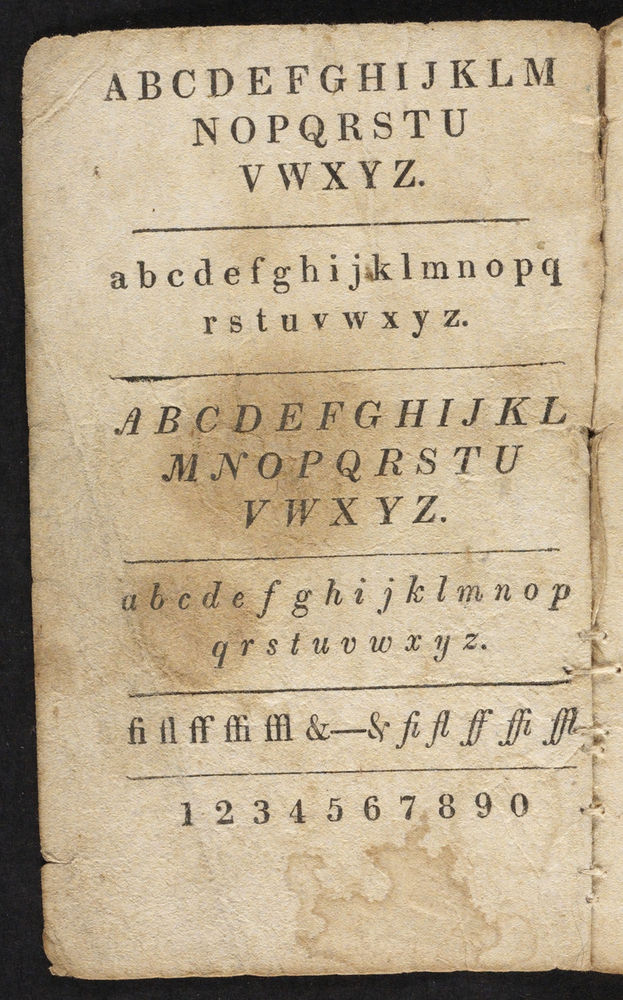 A B C D E F G H I J K L M
N O P Q R S T U
V W X Y Z.
a b c d e f g h i j k l m n o p q
r s t u v w x y z.
A B C D E F G H I J K L
M N O P Q R S T U
V W X Y Z.
a b c d e f g h i j k l m n o p
q r s t u v w x y z.
fi fl ff ffi ffl &—& fi fl ff ffi ffl
1 2 3 4 5 6 7 8 9 0